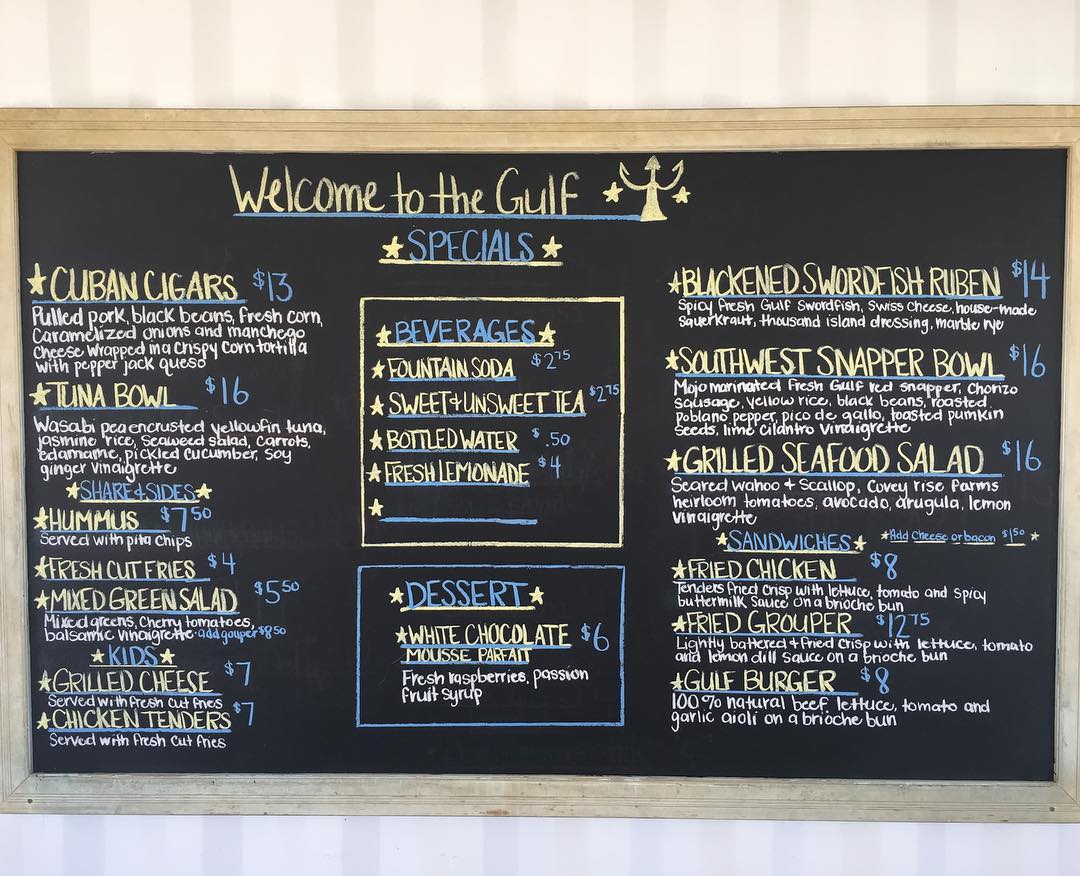 Welcome to the Gulf
SPECIALS
CUBAN CIGARS $13
Pulled pork, black beans, fresh corn,
Caramelized onions and manchego
cheese wrapped in a crispy corn tortilla
with pepper jack queso
TUNA BOWL $16
Wasabi pea encrusted yellowfin tuna,
jasmine rice, seaweed salad, carrots,
Edamame, pickled cucumber, soy
ginger vinaigrette
SHARE & SIDES
HUMMUS $7.50
Served with pita chips
FRESH CUT FRIES $4
MIXED GREEN SALAD $5.50
Mixed greens, Cherry tomatoes,
balsamic vinaigrette · add gouper $8.50
KIDS
GRILLED CHEESE $7
Served with fresh cut fries
CHICKEN TENDERS $7
Served with fresh cut fries
BEVERAGES
FOUNTAIN SODA $2.75
SWEET & UNSWEET TEA $2.75
BOTTLED WATER $.50
FRESH LEMONADE $4
DESSERT
WHITE CHOCOLATE $6
MOUSSE PARFAIT
Fresh raspberries, passion
fruit syrup
BLACKENED SWORDFISH RUBEN $14
Spicy fresh Gulf swordfish, swiss cheese, house-made
sauerkraut, thousand island dressing, marble rye
SOUTHWEST SNAPPER BOWL $16
Mojo marinated fresh Gulf red snapper, Chorizo
sausage, yellow rice, black beans, roasted
Poblano pepper, pico de gallo, toasted pumkin
seeds, lime cilantro vinaigrette
GRILLED SEAFOOD SALAD $16
Seared wahoo & scallop, Covey rise farms
heirloom tomatoes, avocado, arugula, lemon
vinaigrette
SANDWICHES Add cheese or bacon $1.50
FRIED CHICKEN $8
Tenders fried crisp with lettuce, tomato and spicy
buttermilk sauce on a brioche bun
FRIED GROUPER $12.75
Lightly battered & fried crisp with lettuce, tomato
and lemon dill sauce on a brioche bun
GULF BURGER $8
100% natural beef, lettuce, tomato and
garlic aioli on a brioche bun